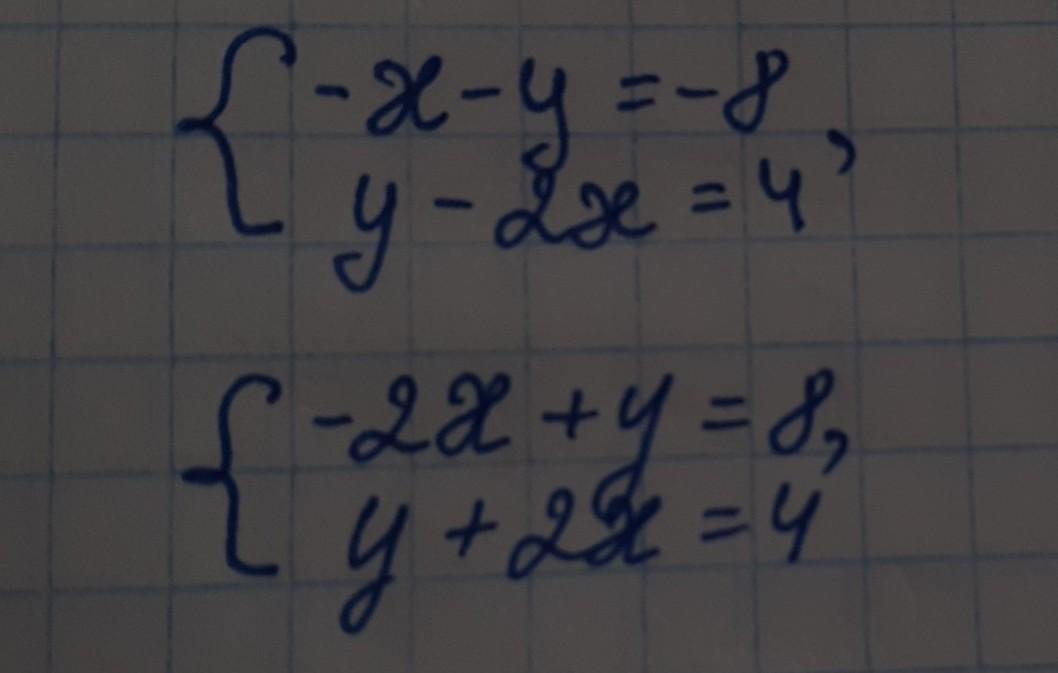 -x-y=-8
y-2x=4,
-2x+y=8,
y+2x=4